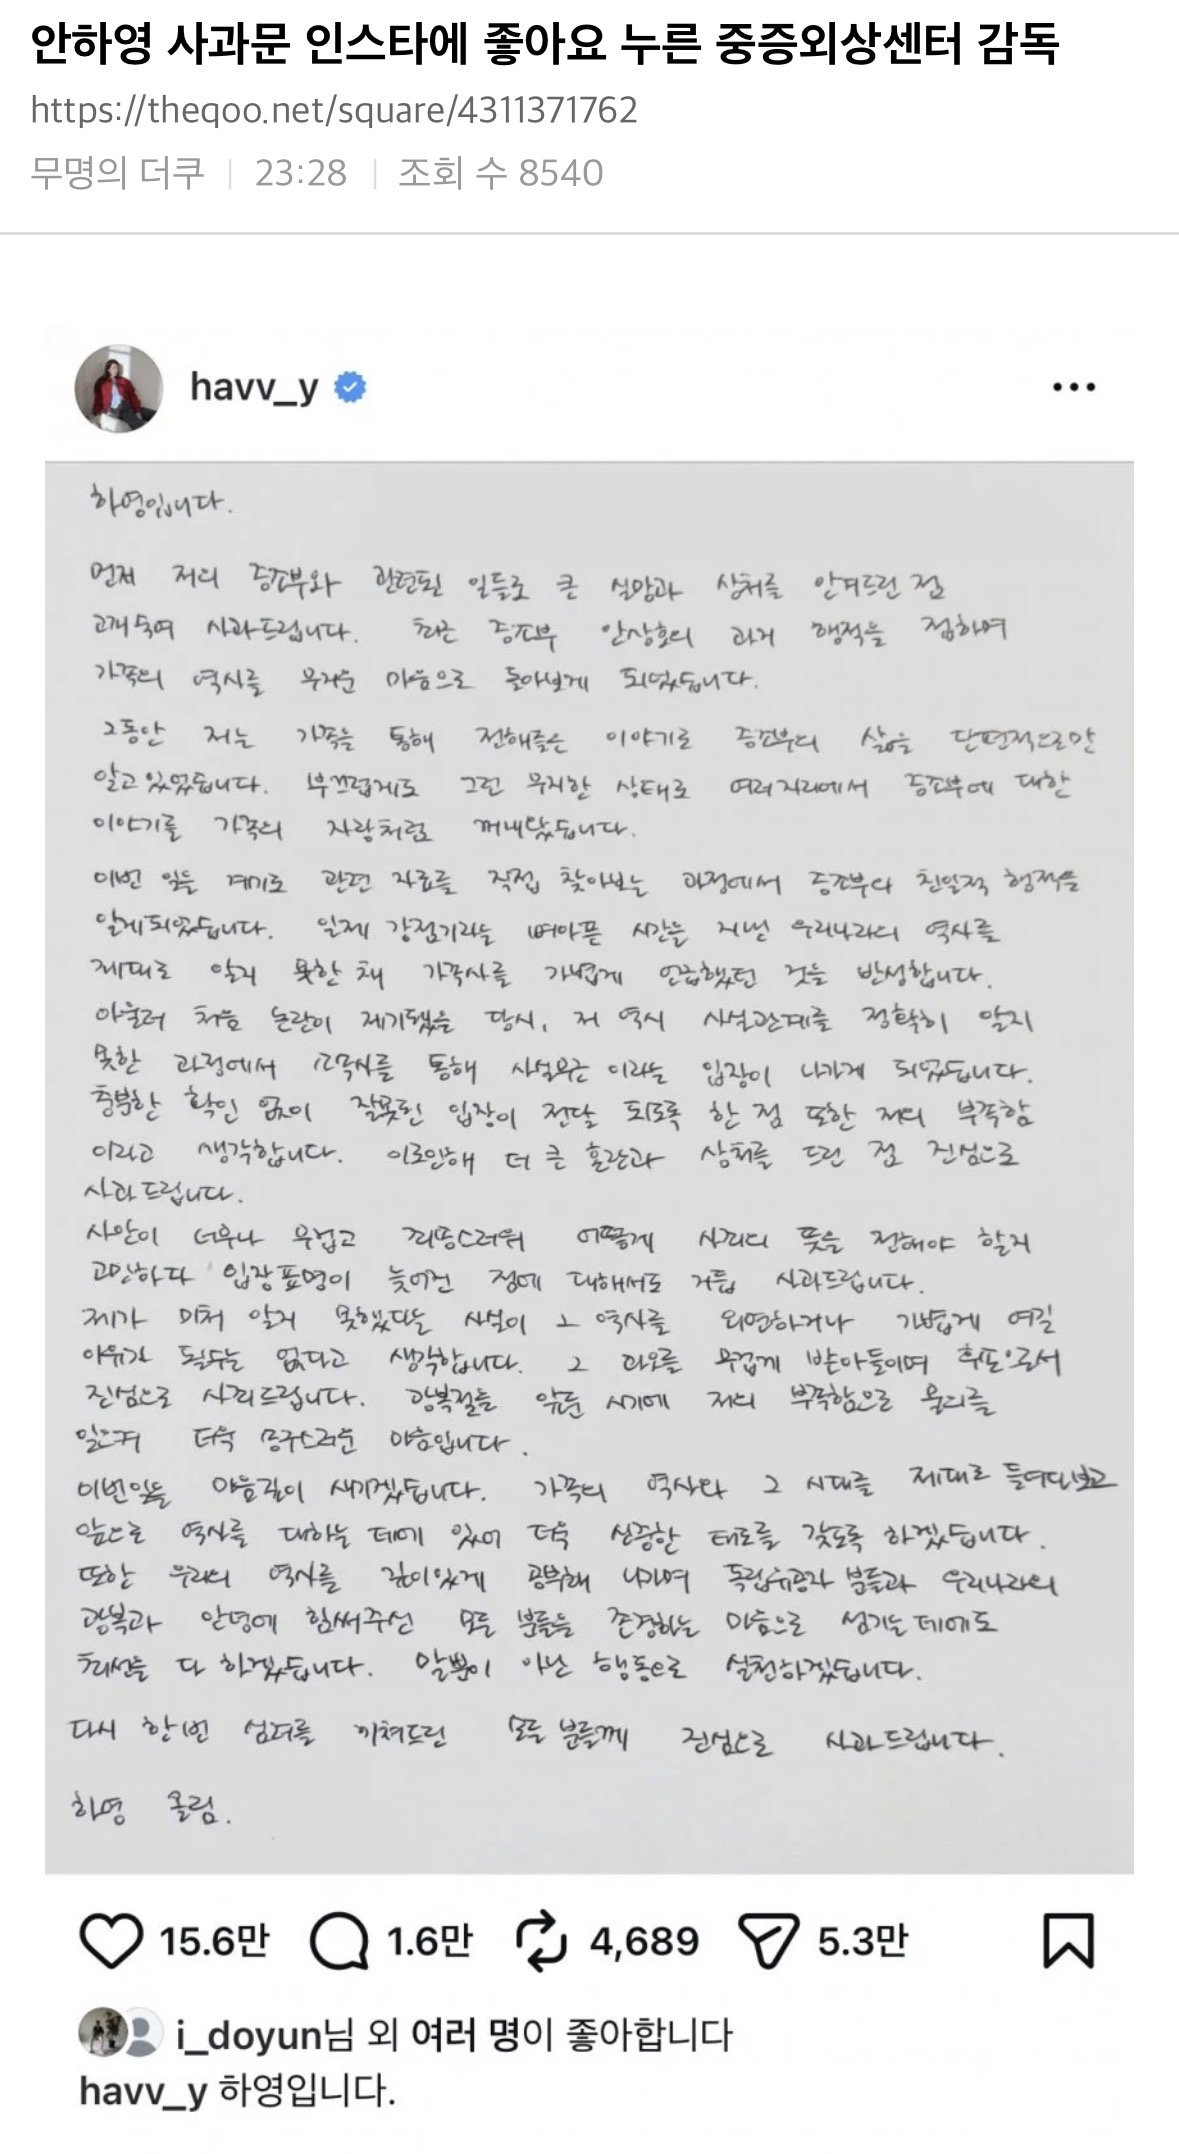 안하영 사과문 인스타에 좋아요 누른 중증외상센터 감독
https://theqoo.net/square/4311371762
무명의 더쿠 | 23:28 | 조회 수 8540
havv_y
하영입니다.
먼저 저의 증조부와 관련된 일들로 큰 실망과 상처를 안겨드린 점
고개숙여 사과드립니다. 최근 증조부 안상호의 과거 행적을 접하며
가족의 역사를 무거운 마음으로 돌아보게 되었습니다.
그동안 저는 가족을 통해 전해들은 이야기로 증조부의 삶을 단편적으로만
알고 있었습니다. 부끄럽게도 그런 무지한 상태로 여러자리에서 증조부에 대한
이야기를 가족의 자랑처럼 꺼내왔습니다.
이번 일을 계기로 관련 자료를 직접 찾아보는 과정에서 증조부의 친일적 행적을
알게되었습니다. 일제 강점기라는 뼈아픈 시간을 지낸 우리나라의 역사를
제대로 알지 못한 채 가족사를 가볍게 언급했던 것을 반성합니다.
아울러 처음 논란이 제기됐을 당시, 저 역시 사실관계를 정확히 알지
못한 과정에서 소속사를 통해 사실무근 이라는 입장이 나가게 되었습니다.
충분한 확인 없이 잘못된 입장이 전달 되도록 한 점 또한 저의 부족함
이라고 생각합니다. 이로인해 더 큰 혼란과 상처를 드린 점 진심으로
사과드립니다.
사안이 너무나 무겁고 죄송스러워 어떻게 사죄의 뜻을 전해야 할지
고민하다 입장표명이 늦어진 점에 대해서도 거듭 사과드립니다.
제가 미처 알지 못했다는 사실이 그 역사를 외면하거나 가볍게 여길
이유가 될수는 없다고 생각합니다. 그 과오를 무겁게 받아들이며 후손으로서
진심으로 사죄드립니다. 광복절을 앞둔 시기에 저의 부족함으로 물의를
일으켜 더욱 송구스러운 마음입니다.
이번일을 마음깊이 새기겠습니다. 가족의 역사와 그 시대를 제대로 들여다보고
앞으로 역사를 대하는 데에 있어 더욱 신중한 태도를 갖도록 하겠습니다.
또한 우리의 역사를 깊이있게 공부해 나가며 독립유공자 분들과 우리나라의
광복과 안녕에 힘써주신 모든 분들을 존경하는 마음으로 섬기는데에도
최선을 다 하겠습니다. 말뿐이 아닌 행동으로 실천하겠습니다.
다시 한번 심려를 끼쳐드린 모든 분들께 진심으로 사과드립니다.
하영 올림.
15.6만 1.6만 4,689 5.3만
i_doyun님 외 여러 명이 좋아합니다
havv_y 하영입니다.